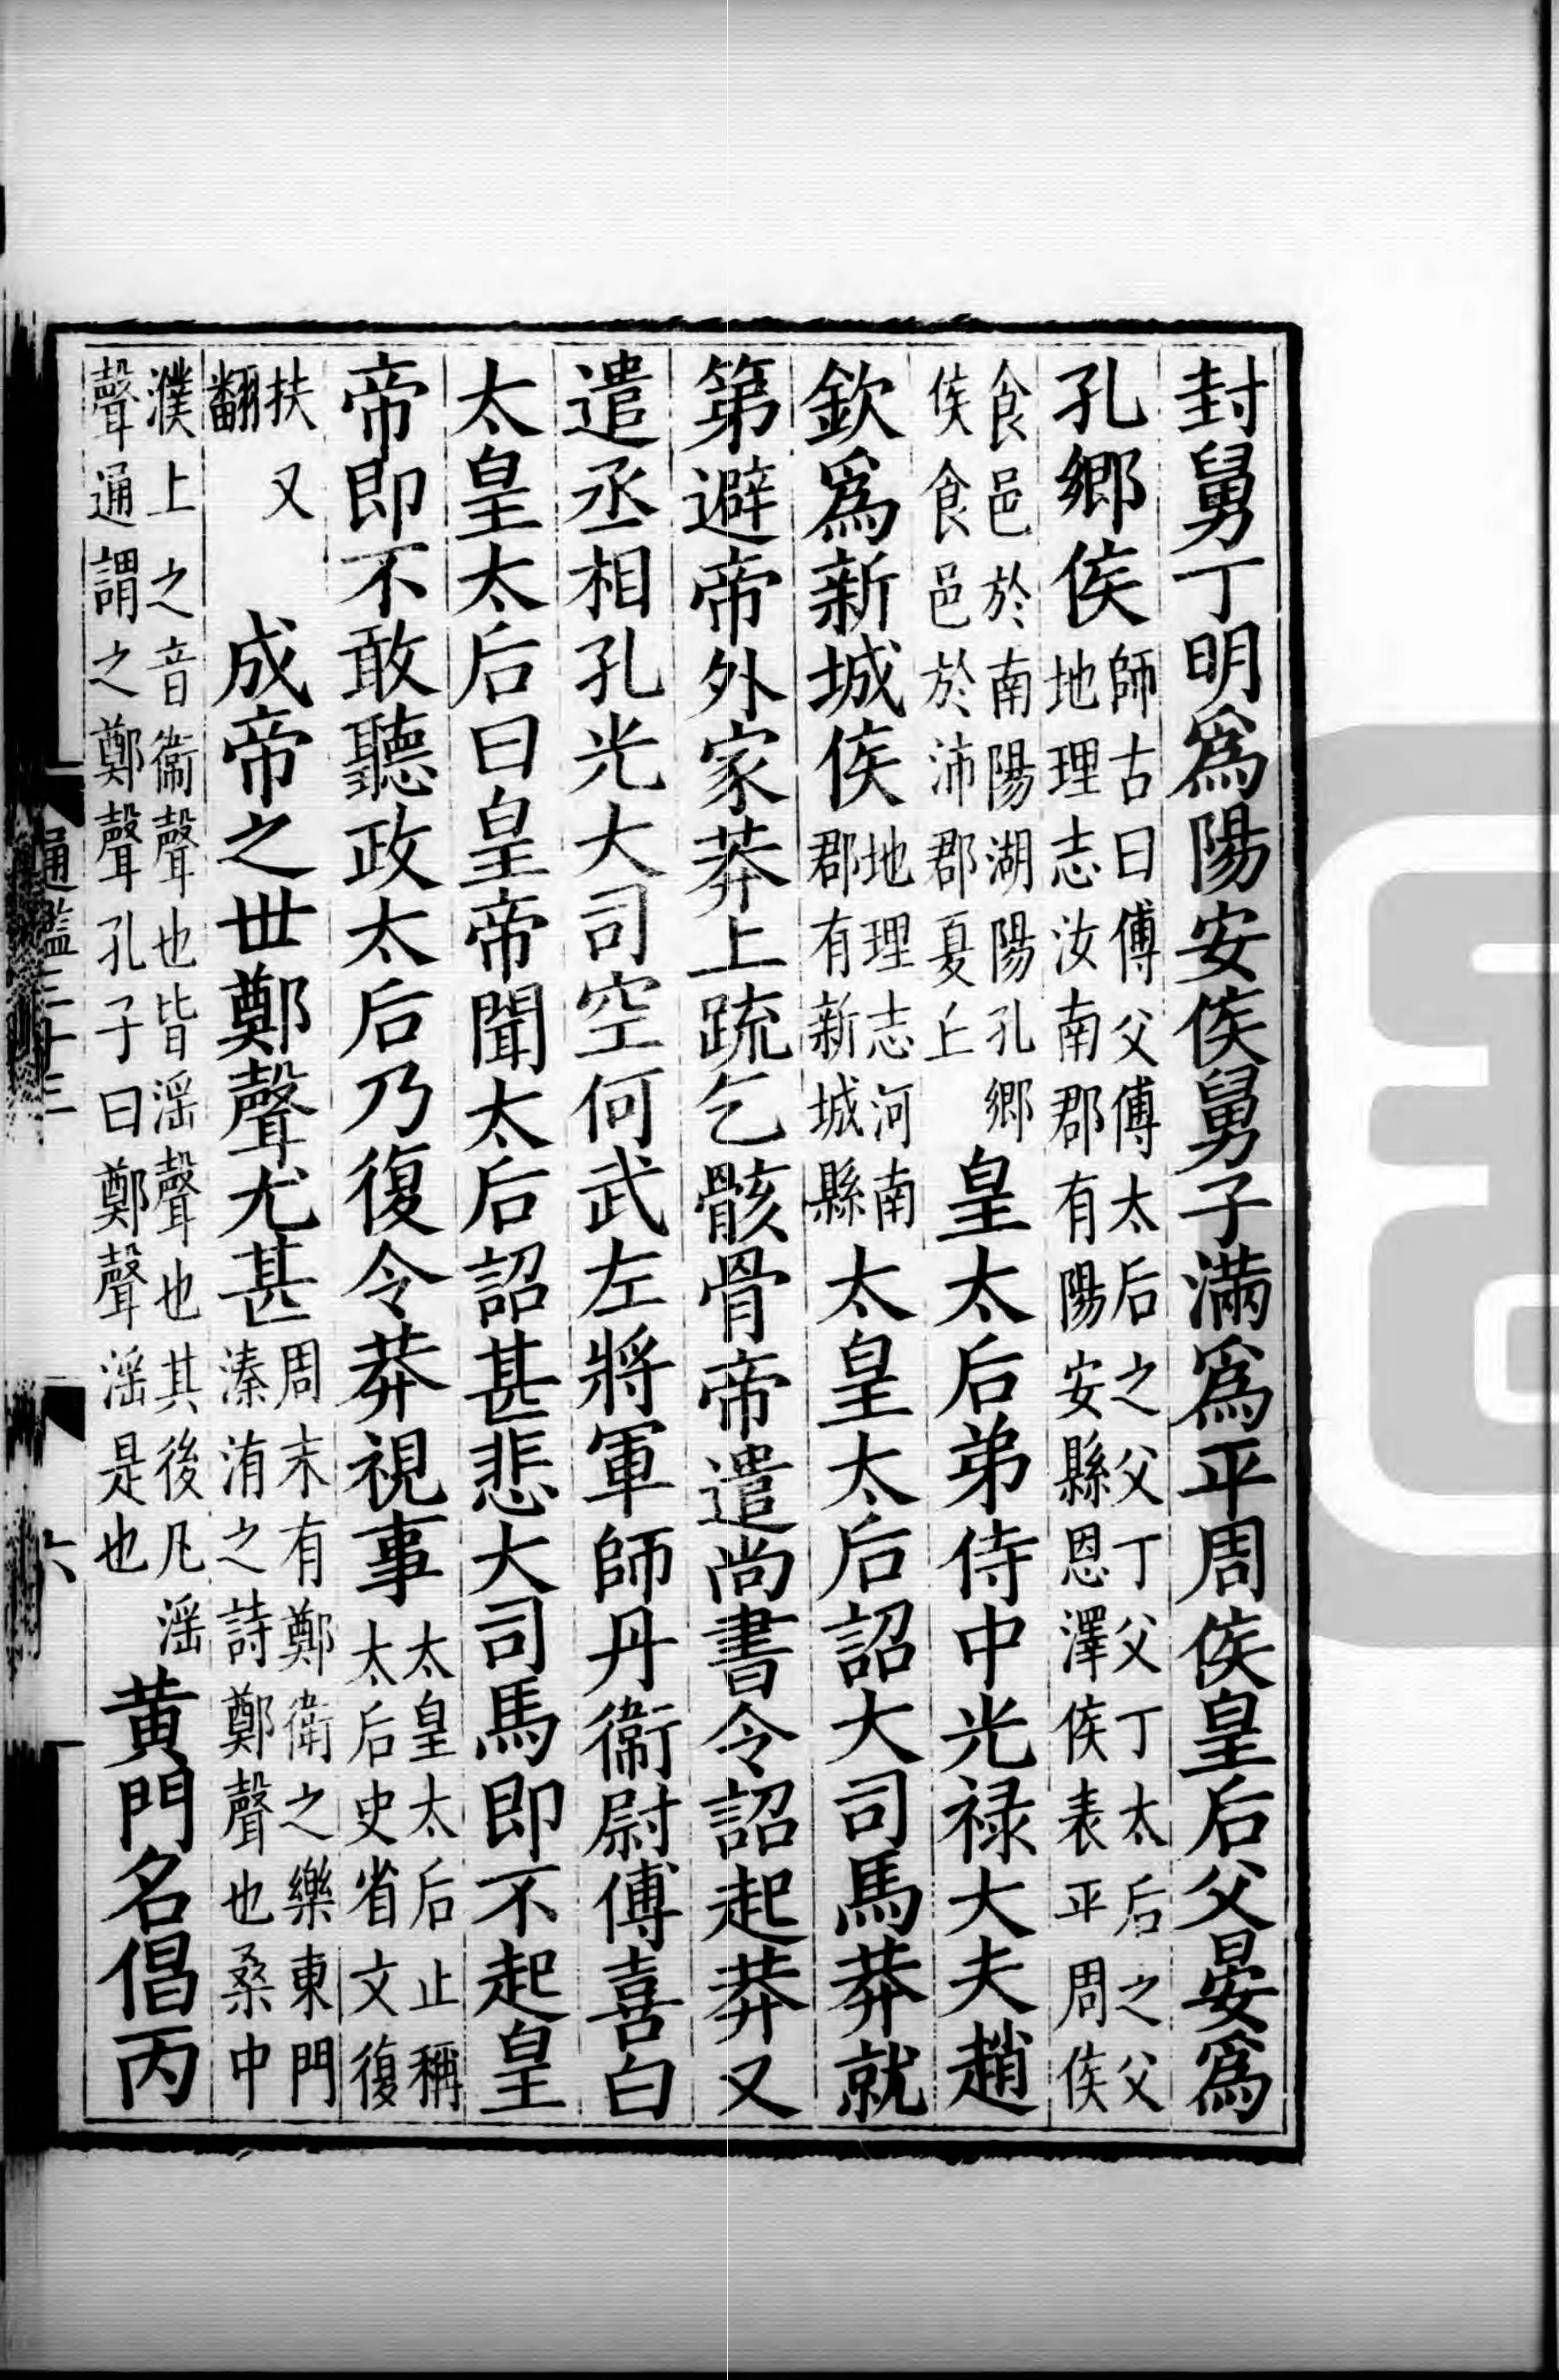 封舅丁明爲陽安侯舅子滿爲平周侯皇后父晏爲
孔鄉侯師古曰傅父傅太后之父丁父丁太后之父地理志汝南郡有陽安縣恩澤侯表平周侯
食邑於南陽湖陽孔鄉侯食邑於沛郡夏丘皇太后弟侍中光祿大夫趙
欽爲新城侯地理志河南郡有新城縣太皇太后詔大司馬莽就
第避帝外家莽上疏乞骸骨帝遣尚書令詔起莽又
遣丞相孔光大司空何武左將軍師丹衞尉傅喜白
太皇太后曰皇帝聞太后詔甚悲大司馬即不起皇
帝即不敢聽政太后乃復令莽視事太皇太后止稱太后史省文復
扶又翻成帝之丗鄭聲尤甚周末有鄭衛之樂東門溱洧之詩鄭聲也桑中
濮上之音衞聲也皆淫聲也其後凡淫聲通謂之鄭聲孔子曰鄭聲淫是也黄門名倡丙
通鑑三十三
六